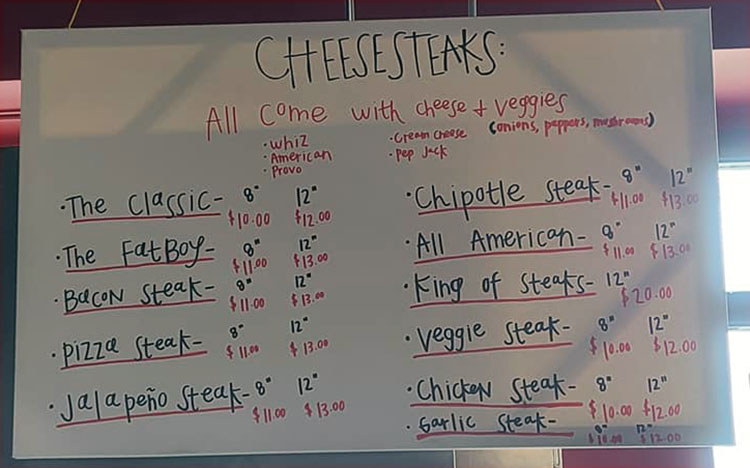 CHEESESTEAKS:
All Come with cheese + veggies
(onions, peppers, mushrooms)
• Whiz
• American
• Provo
• Cream cheese
• Pep Jack
• The Classic- 8" 12"
$10.00 $12.00
• The FatBoy- 8" 12"
$11.00 $13.00
• Bacon Steak- 8" 12"
$11.00 $13.00
• Pizza Steak- 8" 12"
$11.00 $13.00
• Jalapeño Steak- 8" 12"
$11.00 $13.00
• Chipotle Steak- 8" 12"
$11.00 $13.00
• All American- 8" 12"
$11.00 $13.00
• King of Steaks- 12"
$20.00
• Veggie Steak- 8" 12"
$10.00 $12.00
• Chicken Steak- 8" 12"
$10.00 $12.00
• Garlic Steak-
8" 12"
$10.00 $12.00